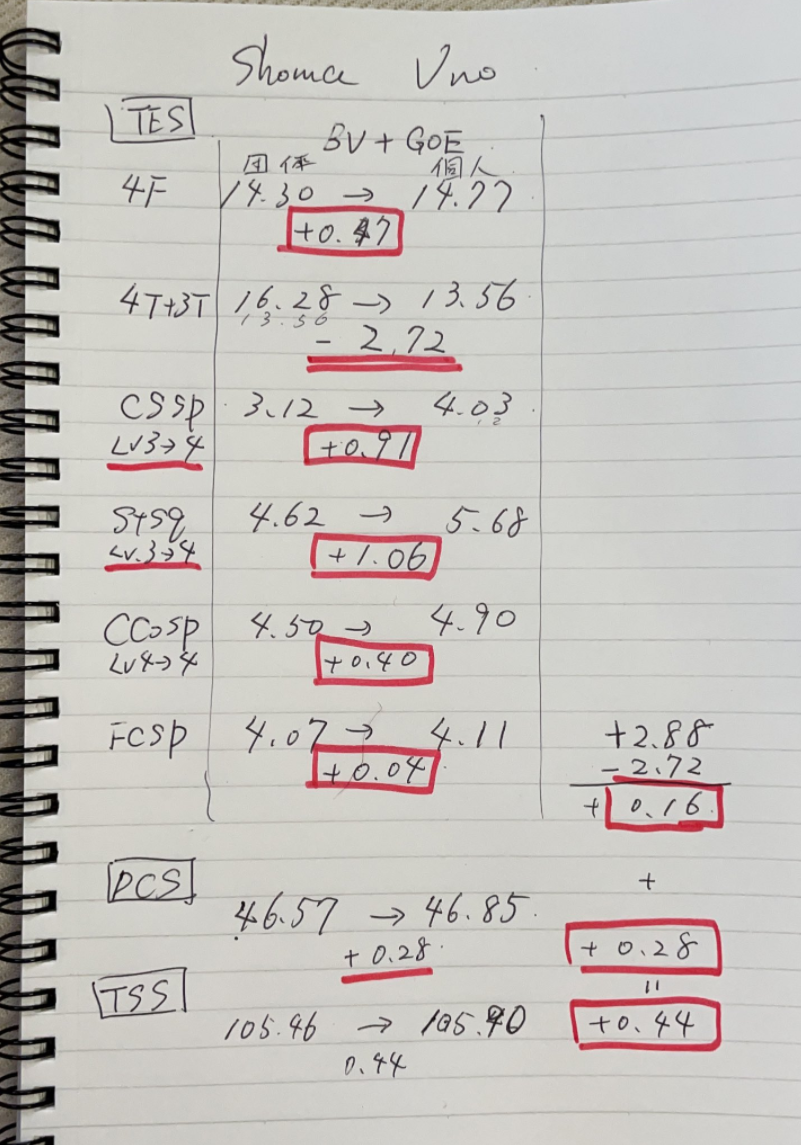 Shoma Uno
TES
BV + GOE
団体 個人
4F 14.30 → 14.77
+0.47
4T+3T 16.28 → 13.56
13.56
- 2.72
CSSp 3.12 → 4.03
12
LV3→4 +0.91
StSq 4.62 → 5.68
Lv.3→4 +1.06
CCoSp 4.50 → 4.90
Lv4→4 +0.40
FCSp 4.07 → 4.11
+0.04
+2.88
-2.72
+ 0.16
PCS
+
46.57 → 46.85
+ 0.28
+ 0.28
=
TSS
105.46 → 105.90
+0.44
0.44